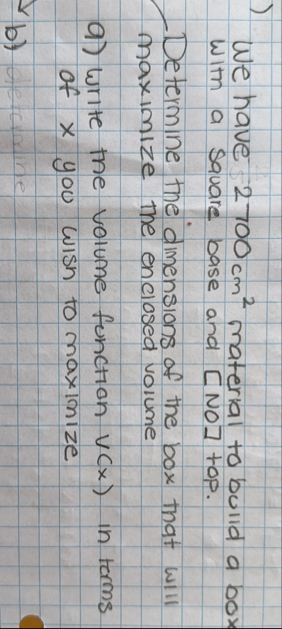 )
We have 2700cm² material to build a box
with a square base and [NO] top.
Determine the dimensions of the box that will
maximize the enclosed volume
a) write the volume function V(x) in terms
of x you wish to maximize
b) determine